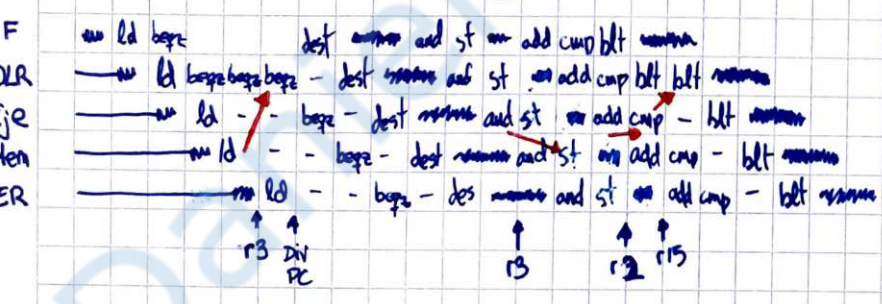 F ld beqz dest and st add cmp blt
DLR ld beqz beqz beqz - dest and st add cmp blt blt
je ld - - beqz - dest and st add cmp - blt
em ld - - beqz - dest and st add cmp - blt
ER ld - - beqz - des and st add cmp - blt
r3 Div r3 r2 r15
PC
Daniel